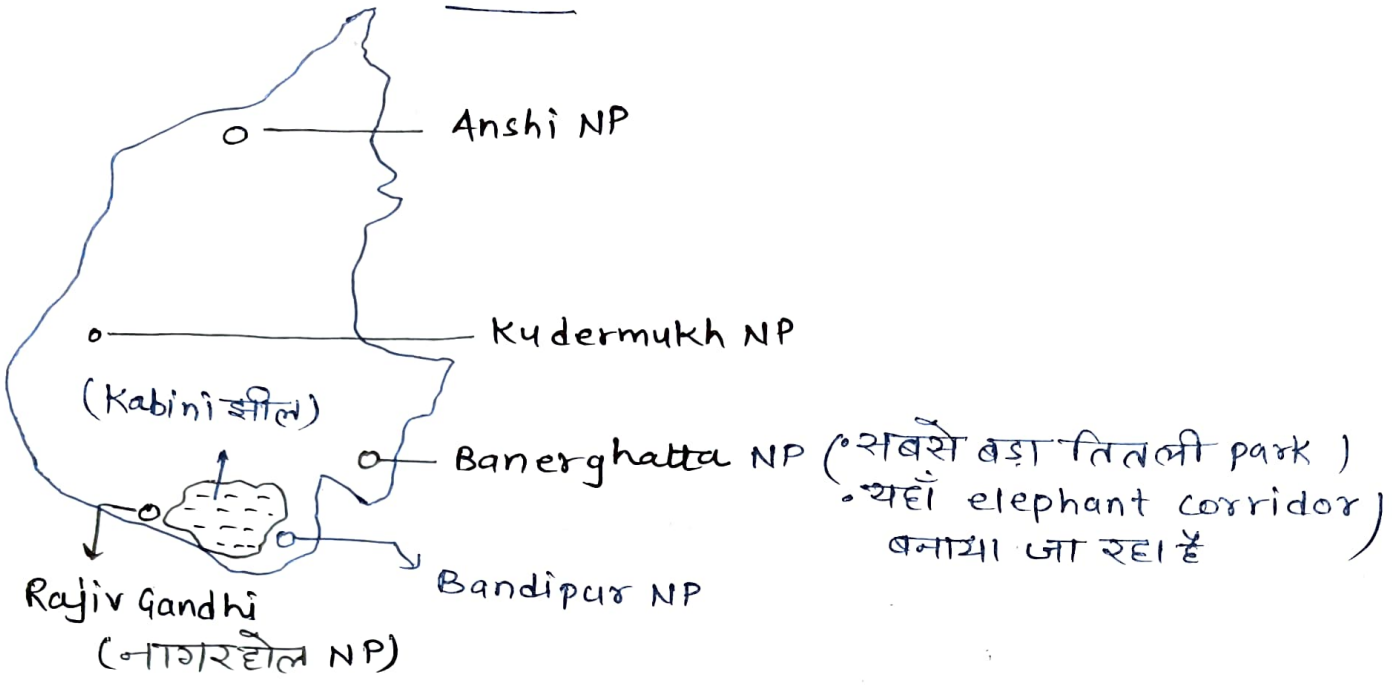 Anshi NP
Kudermukh NP
(Kabini झील)
Banerghatta NP (• सबसे बड़ा तितली park )
• यहाँ elephant corridor )
बनाया जा रहा है
Bandipur NP
Rajiv Gandhi
(नागरहोल NP)